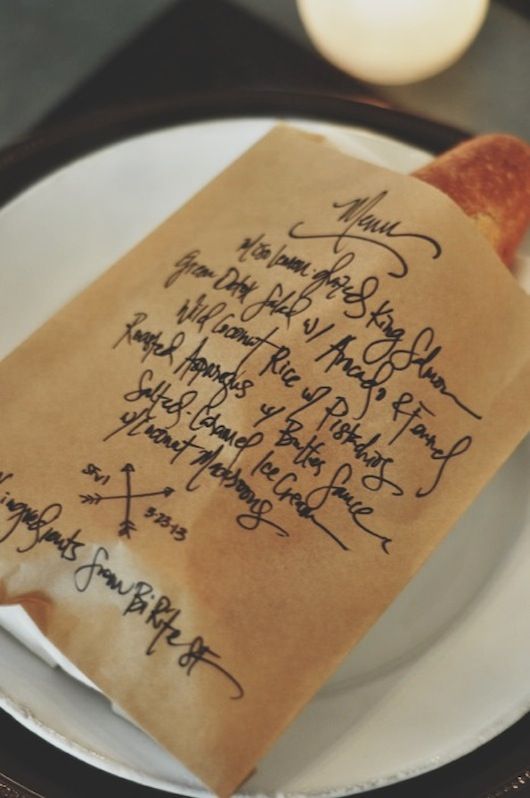 Menu
Miso lemon-glazed King Salmon
Green Detox Salad w/ Avocado & Fennel
Wild Coconut Rice w/ Pistachios
Roasted Asparagus w/ Butter Sauce
Salted-Caramel Ice Cream
w/ Coconut Macaroons
3-23-13
ingredients from BiRite SF